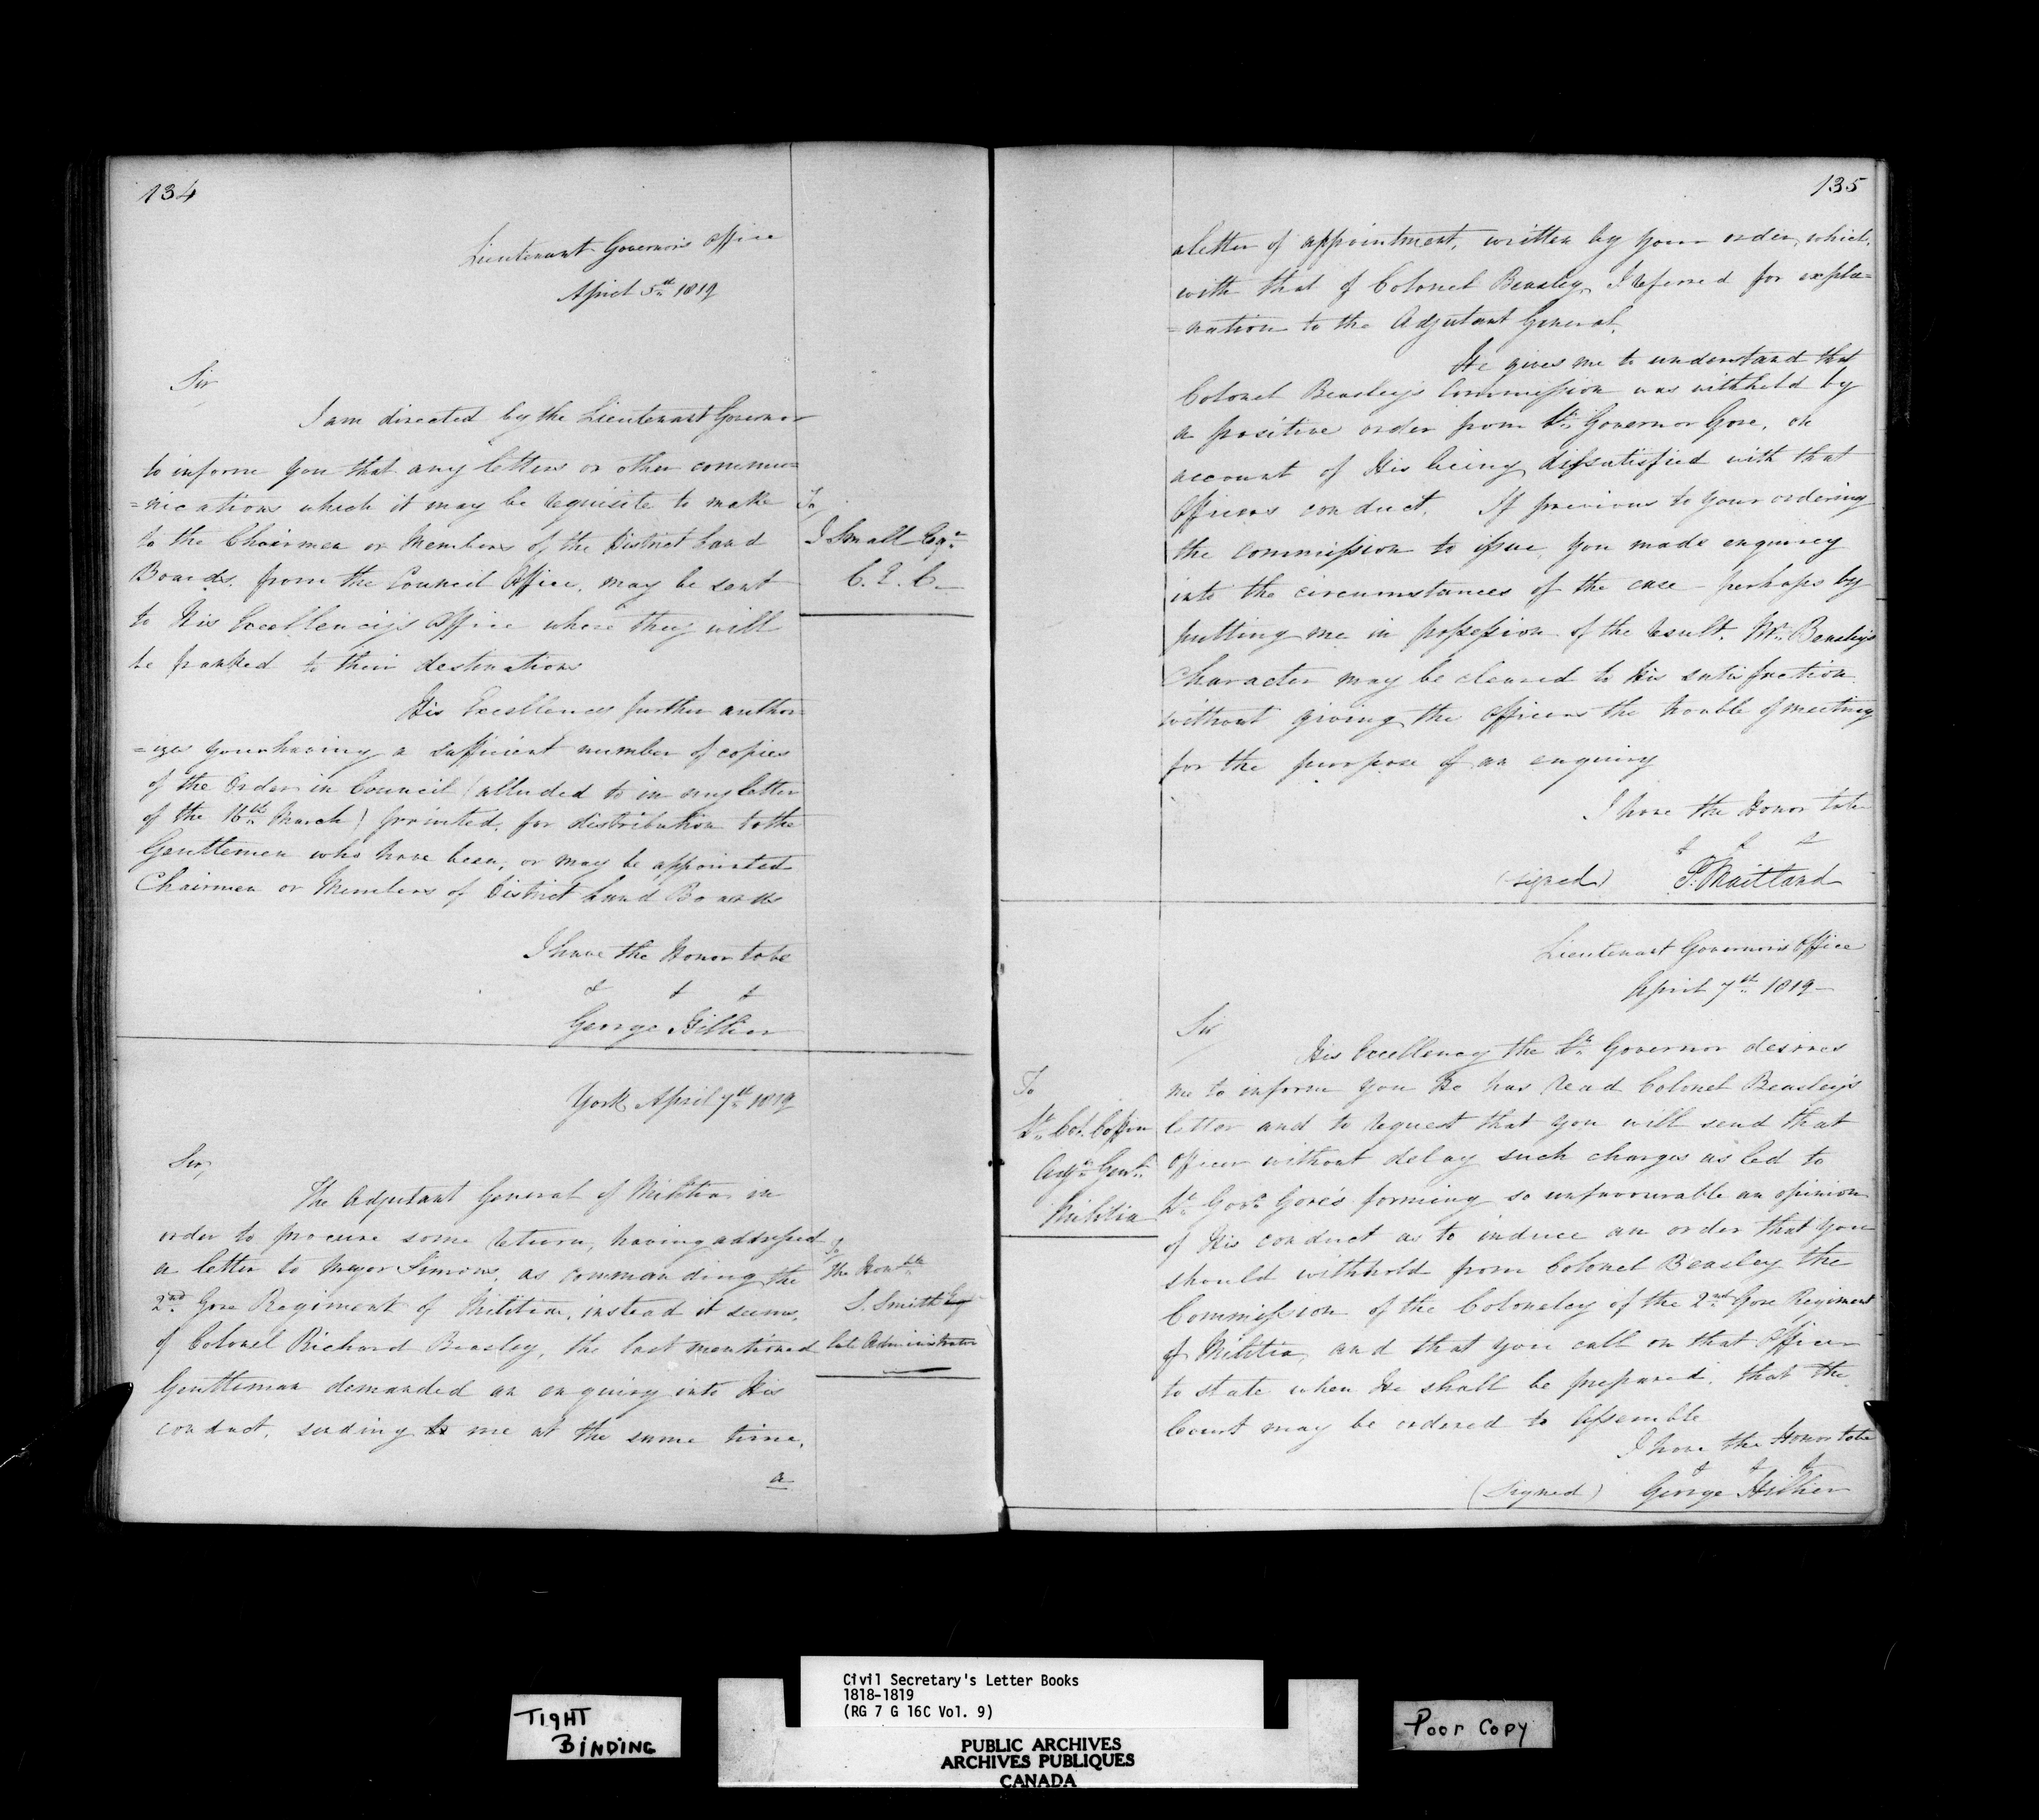 134
Lieutenant Governor's Office
April 5th 1819
Sir
I am directed by the Lieutenant Governor
to inform you that any letters or other commu=
=nications which it may be requisite to make
to the Chairmen or Members of the District Land
Boards, from the Council Office, may be sent
to His Excellency's Office where they will
be franked to their destinations
His Excellency further author=
=izes your having a sufficient number of copies
of the Order in Council (alluded to in my letter
of the 16th March) printed, for distribution to the
Gentlemen who have been, or may be appointed
Chairmen or Members of District Land Boards
I have the Honor to be
& & &
George Hillier
To
J Small Esqr
C. E. C.
York April 7th 1819
Sir,
The Adjutant General of Militia in
order to procure some return, having addressed
a letter to Major Simons, as commanding the
2nd Gore Regiment of Militia, instead it seems,
of Colonel Richard Beasley, the last mentioned
Gentleman demanded an enquiry into His
conduct, sending to me at the same time,
a
To
The Honble
S. Smith Esq
late Administrator
135
a letter of appointment, written by your order, which,
with that of Colonel Beasley, I referred for expla=
=nation to the Adjutant General.
He gives me to understand that
Colonel Beasley's Commission was withheld by
a positive order from Lt Governor Gore, on
account of His being dissatisfied with that
Officers conduct. If previous to your ordering
the Commission to issue, you made enquiry
into the circumstances of the case – perhaps by
putting me in possession of the result, Mr Beasley's
Character may be cleared to His satisfaction
without giving the officers the trouble of meeting
for the purpose of an enquiry
I have the Honor to be
& & &
(signed) P. Maitland
Lieutenant Governor's Office
April 7th 1819 –
Sir
His Excellency the Lt Governor desires
me to inform you He has read Colonel Beasley's
letter and to request that you will send that
Officer without delay such charges as led to
Lt Govr Gore's forming so unfavourable an opinion
of His conduct as to induce an order that you
should withhold from Colonel Beasley the
Commission of the Colonelcy of the 2nd Gore Regiment
of Militia, and that you call on that Officer
to state when He shall be prepared, that the
Court may be ordered to Assemble
I have the Honor to be
& & &
(Signed) George Hillier
To
Lt Col Coffin
Adjt Genl
Militia
TIGHT
BINDING
Civil Secretary's Letter Books
1818-1819
(RG 7 G 16C Vol. 9)
PUBLIC ARCHIVES
ARCHIVES PUBLIQUES
CANADA
Poor Copy